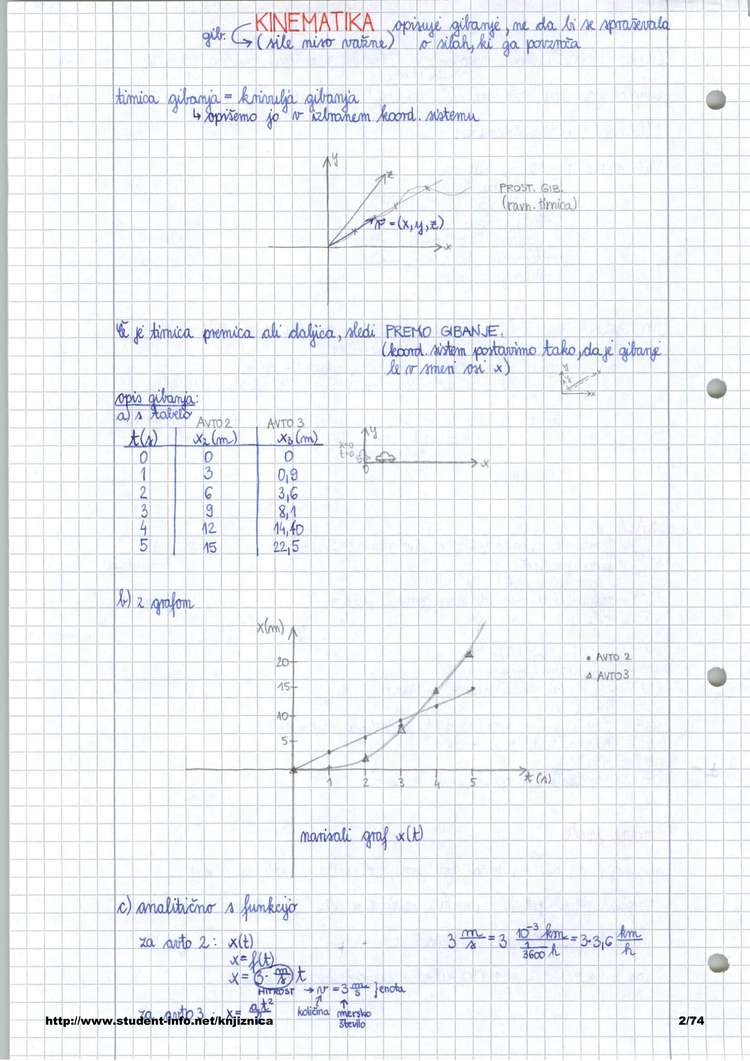 KINEMATIKA opisuje gibanje, ne da bi se spraševala
gib. (sile niso važne) o silah, ki ga povzroča
tirnica gibanja = krivulja gibanja
↳ opišemo jo v izbranem koord. sistemu
y
z
PROST. GIB.
(ravn. tirnica)
r = (x, y, z)
x
Če je tirnica premica ali daljica, sledi PREMO GIBANJE.
(koord. sistem postavimo tako, da je gibanje
le v smeri osi x)
y
x
opis gibanja:
a) s tabelo
AVTO 2 AVTO 3
t(s) x₂(m) x₃(m)
0 0 0
1 3 0,9
2 6 3,6
3 9 8,1
4 12 14,40
5 15 22,5
y
x=0
t=0
0
x
b) z grafom
x(m)
20
15
10
5
1 2 3 4 5 t(s)
• AVTO 2
▵ AVTO 3
narisali graf x(t)
c) analitično s funkcijo
za avto 2: x(t)
x = f(t)
x = (3 · m/s) t
HITROST → v = 3 m/s } enota
količina mersko
število
3 m/s = 3 10⁻³ km / 1/3600 h = 3·3,6 km/h
za avto 3: x = a t²
http://www.student-info.net/knjiznica
2/74